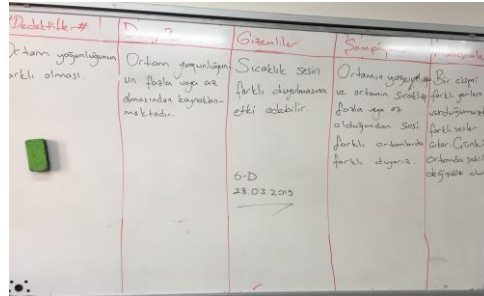 "Dedektifler #
Ortam yoğunluğunun
farklı olması.
Ortam yoğunluğun-
un fazla veya az
olmasından kaynaklan-
maktadır.
Gizemliler
Sıcaklık sesin
farklı duyulmasına
etki edebilir.
6-D
28.03.2019
Ortamın yoğunluğu
ve ortamın sıcaklığı
fazla veya az
olduğundan sesi
farklı ortamlarda
farklı duyarız.
Bir cismi
farklı yerlere
vurduğumuzda
farklı sesler
çıkar. Çünkü
ortamda
değişiklik